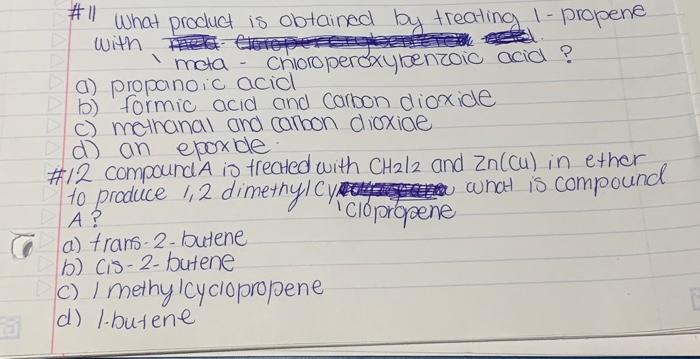 #11 What product is obtained by treating 1-propene
with
meta - chloroperoxybenzoic acid ?
a) propanoic acid
b) formic acid and carbon dioxide
c) methanal and carbon dioxide
d) an epoxide.
#12 compound A is treated with CH2I2 and Zn(Cu) in ether
to produce 1,2 dimethylcy what is compound
clopropene
A?
a) trans-2-butene
b) cis-2-butene
c) 1 methylcyclopropene
d) 1-butene